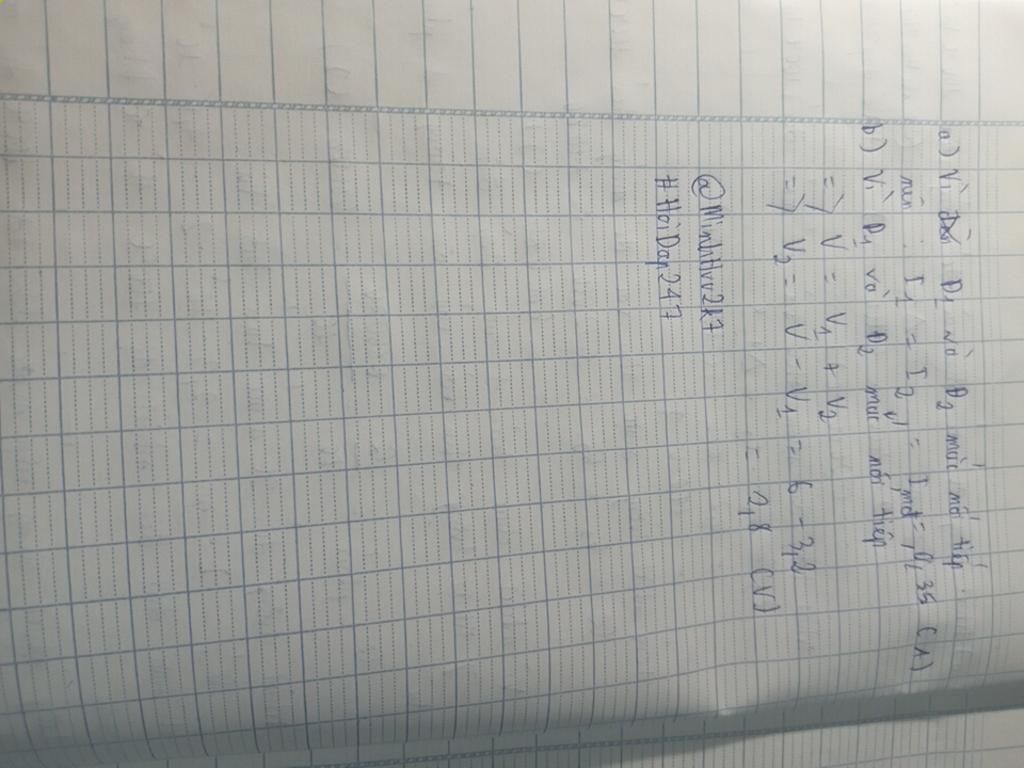 a) Vì Đ1 và Đ2 mắc nối tiếp
nên : I1 = I2 = Imđ = 0,35 (A)
b) Vì Đ1 và Đ2 mắc nối tiếp
=> V = V1 + V2
=> V2 = V - V1 = 6 - 3,2
= 2,8 (V)
@MinhHv2k7
#HoiDap247